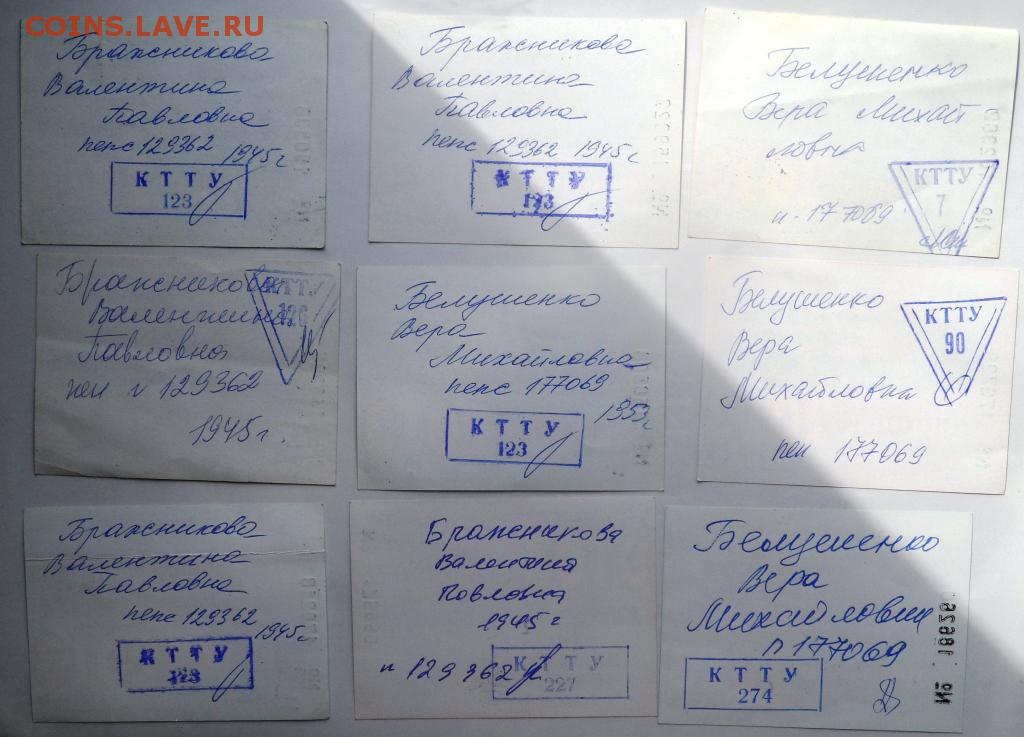 COINS.LAVE.RU
Бражникова
Валентина
Павловна
пенс 129362 1945г
КТТУ
123
Бражникова
Валентина
Павловна
пенс 129362 1945г
КТТУ
Белушенко
Вера Михай
ловна
п-177069
КТТУ
7
Бражникова
Валентина
Павловна
пен 129362
1945г.
КТТУ
126
Белушенко
Вера
Михайловна
пенс 177069
1953г
КТТУ
123
Белушенко
Вера
Михайловна
пен 177069
КТТУ
90
Бражникова
Валентина
Павловна
пенс 129362
1945г
КТТУ
123
Бражникова
Валентина
Повловна
1945г
п 129362
КТТУ
227
Белушенко
Вера
Михайловна
П 177069
КТТУ
274